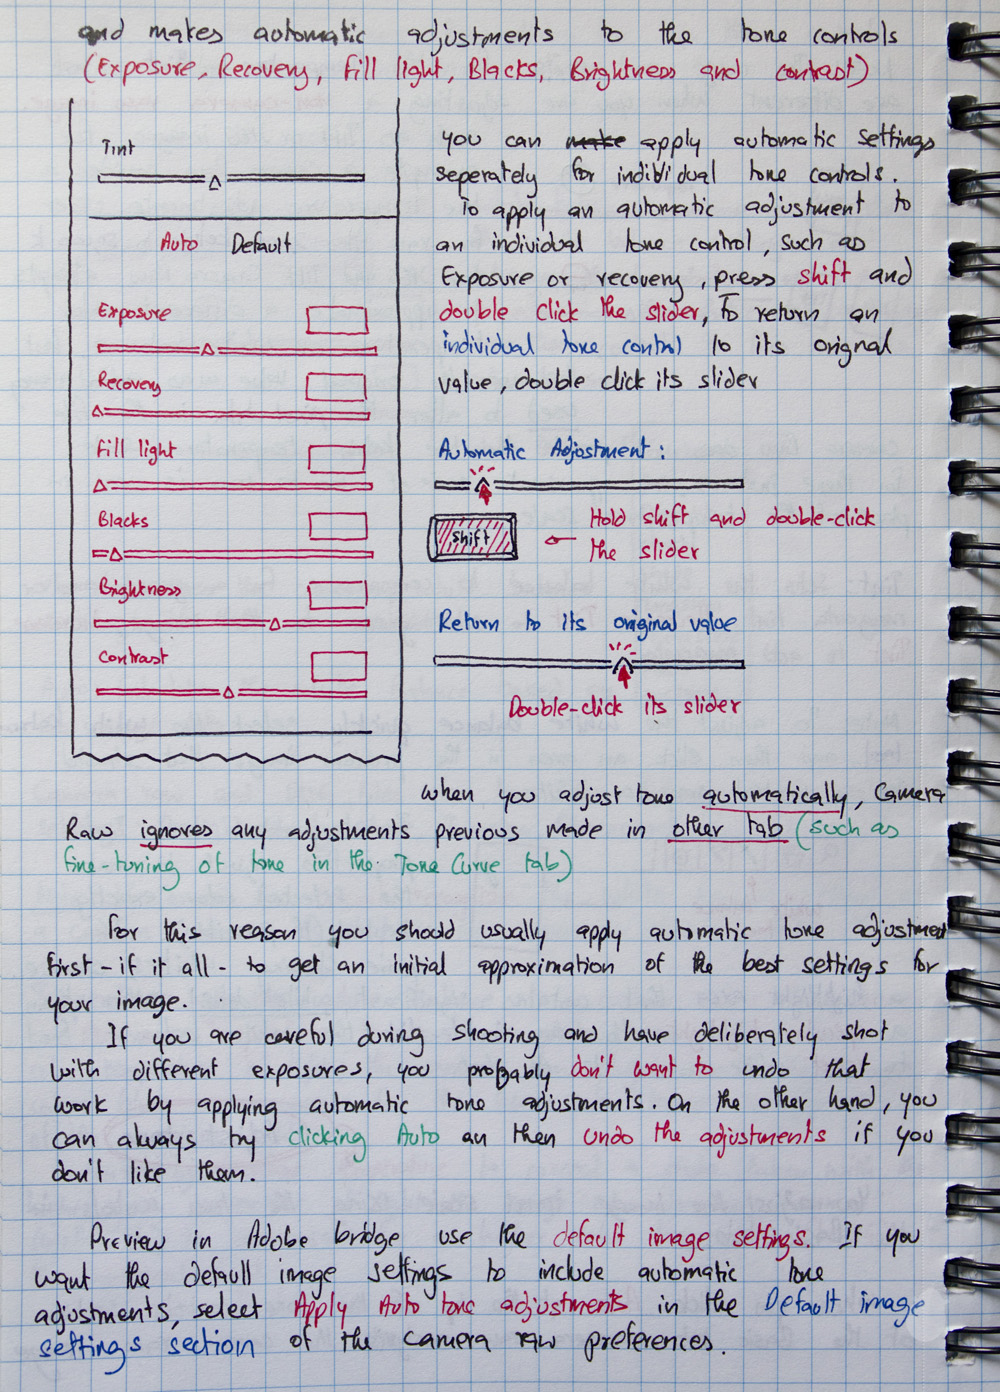 and makes automatic adjustments to the tone controls
(Exposure, Recovery, Fill light, Blacks, Brightness and contrast)
Tint
Auto Default
Exposure
Recovery
Fill light
Blacks
Brightness
Contrast
you can make apply automatic settings
seperately for individual tone controls.
To apply an automatic adjustment to
an individual tone control, such as
Exposure or recovery, press shift and
double click the slider, To return an
individual tone control to its orignal
value, double click its slider
Automatic Adjustment:
shift
Hold shift and double-click
the slider
Return to its original value
Double-click its slider
when you adjust tone automatically, Camera
Raw ignores any adjustments previous made in other tab (such as
fine-tuning of tone in the Tone Curve tab)
For this reason you should usually apply automatic tone adjustment
first - if it all - to get an initial approximation of the best settings for
your image.
If you are careful during shooting and have deliberately shot
with different exposures, you probably don't want to undo that
work by applying automatic tone adjustments. On the other hand, you
can always try clicking Auto an then undo the adjustments if you
don't like them.
Preview in Adobe bridge use the default image settings. If you
want the default image settings to include automatic tone
adjustments, select Apply Auto tone adjustments in the Default image
settings section of the camera raw preferences.